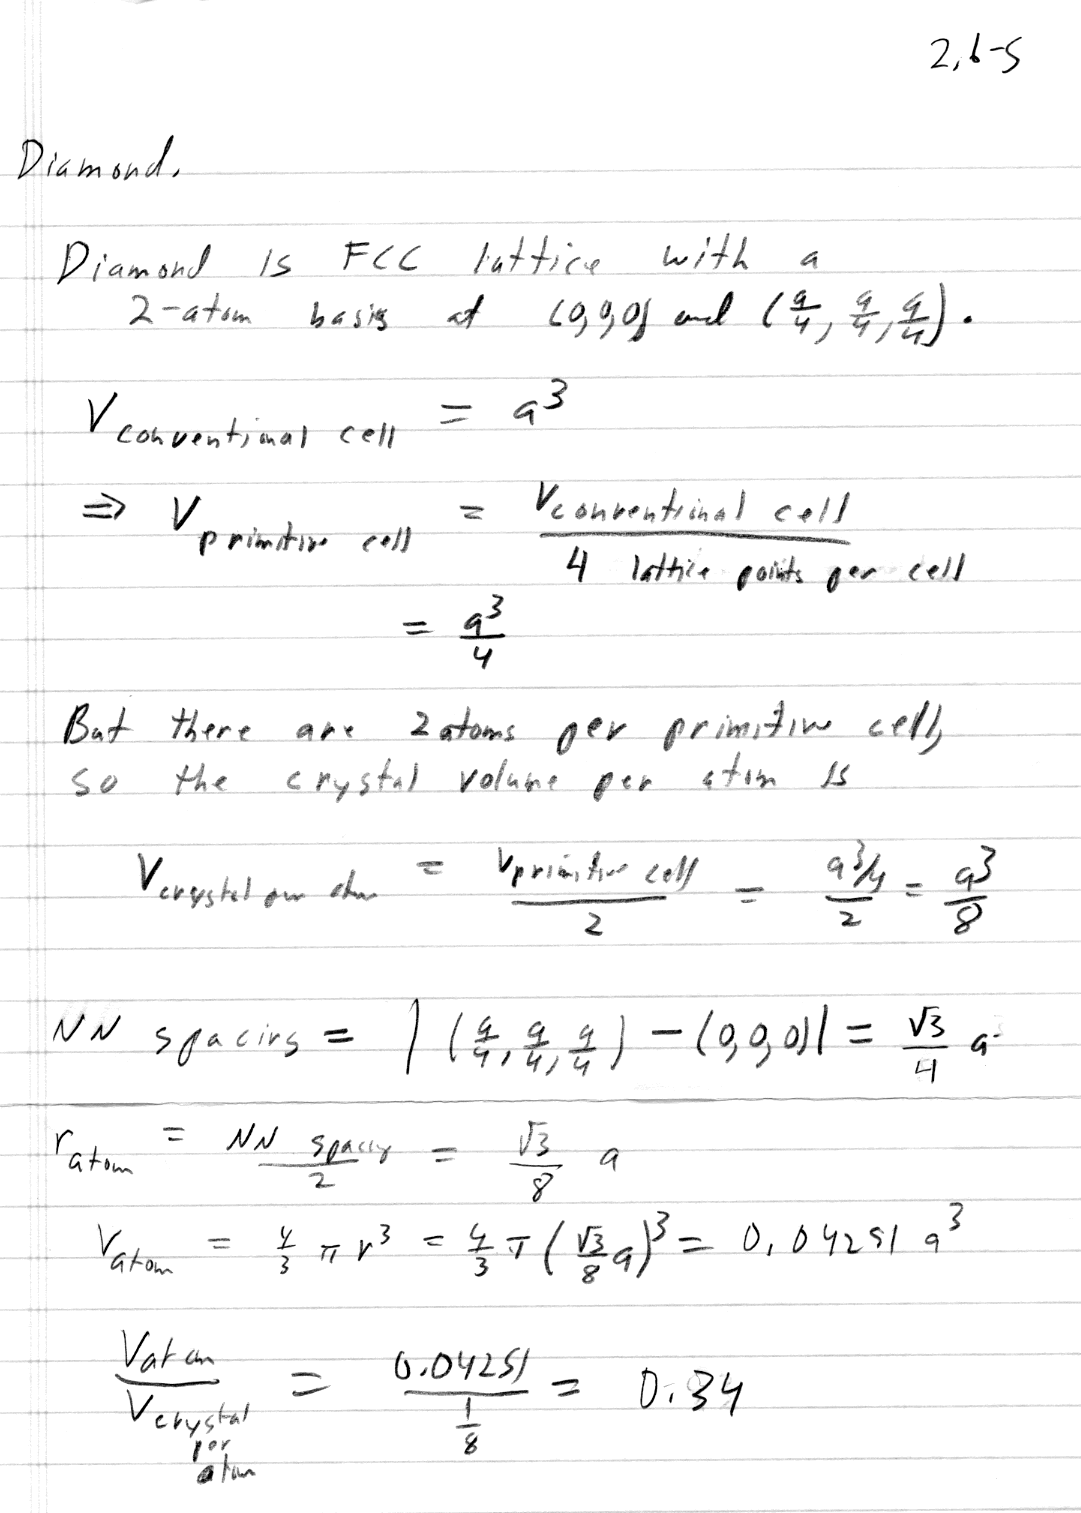 2.6-5
Diamond.
Diamond is FCC lattice with a
2-atom basis at (0,0,0) and (a/4, a/4, a/4).
V conventional cell = a³
⇒ V primitive cell = V conventional cell / 4 lattice points per cell
= a³/4
But there are 2 atoms per primitive cell,
so the crystal volume per atom is
V crystal per atom = V primitive cell / 2 = (a³/4)/2 = a³/8
NN spacing = |(a/4, a/4, a/4) - (0,0,0)| = √3/4 a
r atom = NN spacing / 2 = √3/8 a
V atom = 4/3 π r³ = 4/3 π (√3/8 a)³ = 0.04251 a³
V atom / V crystal per atom = 0.04251 / (1/8) = 0.34